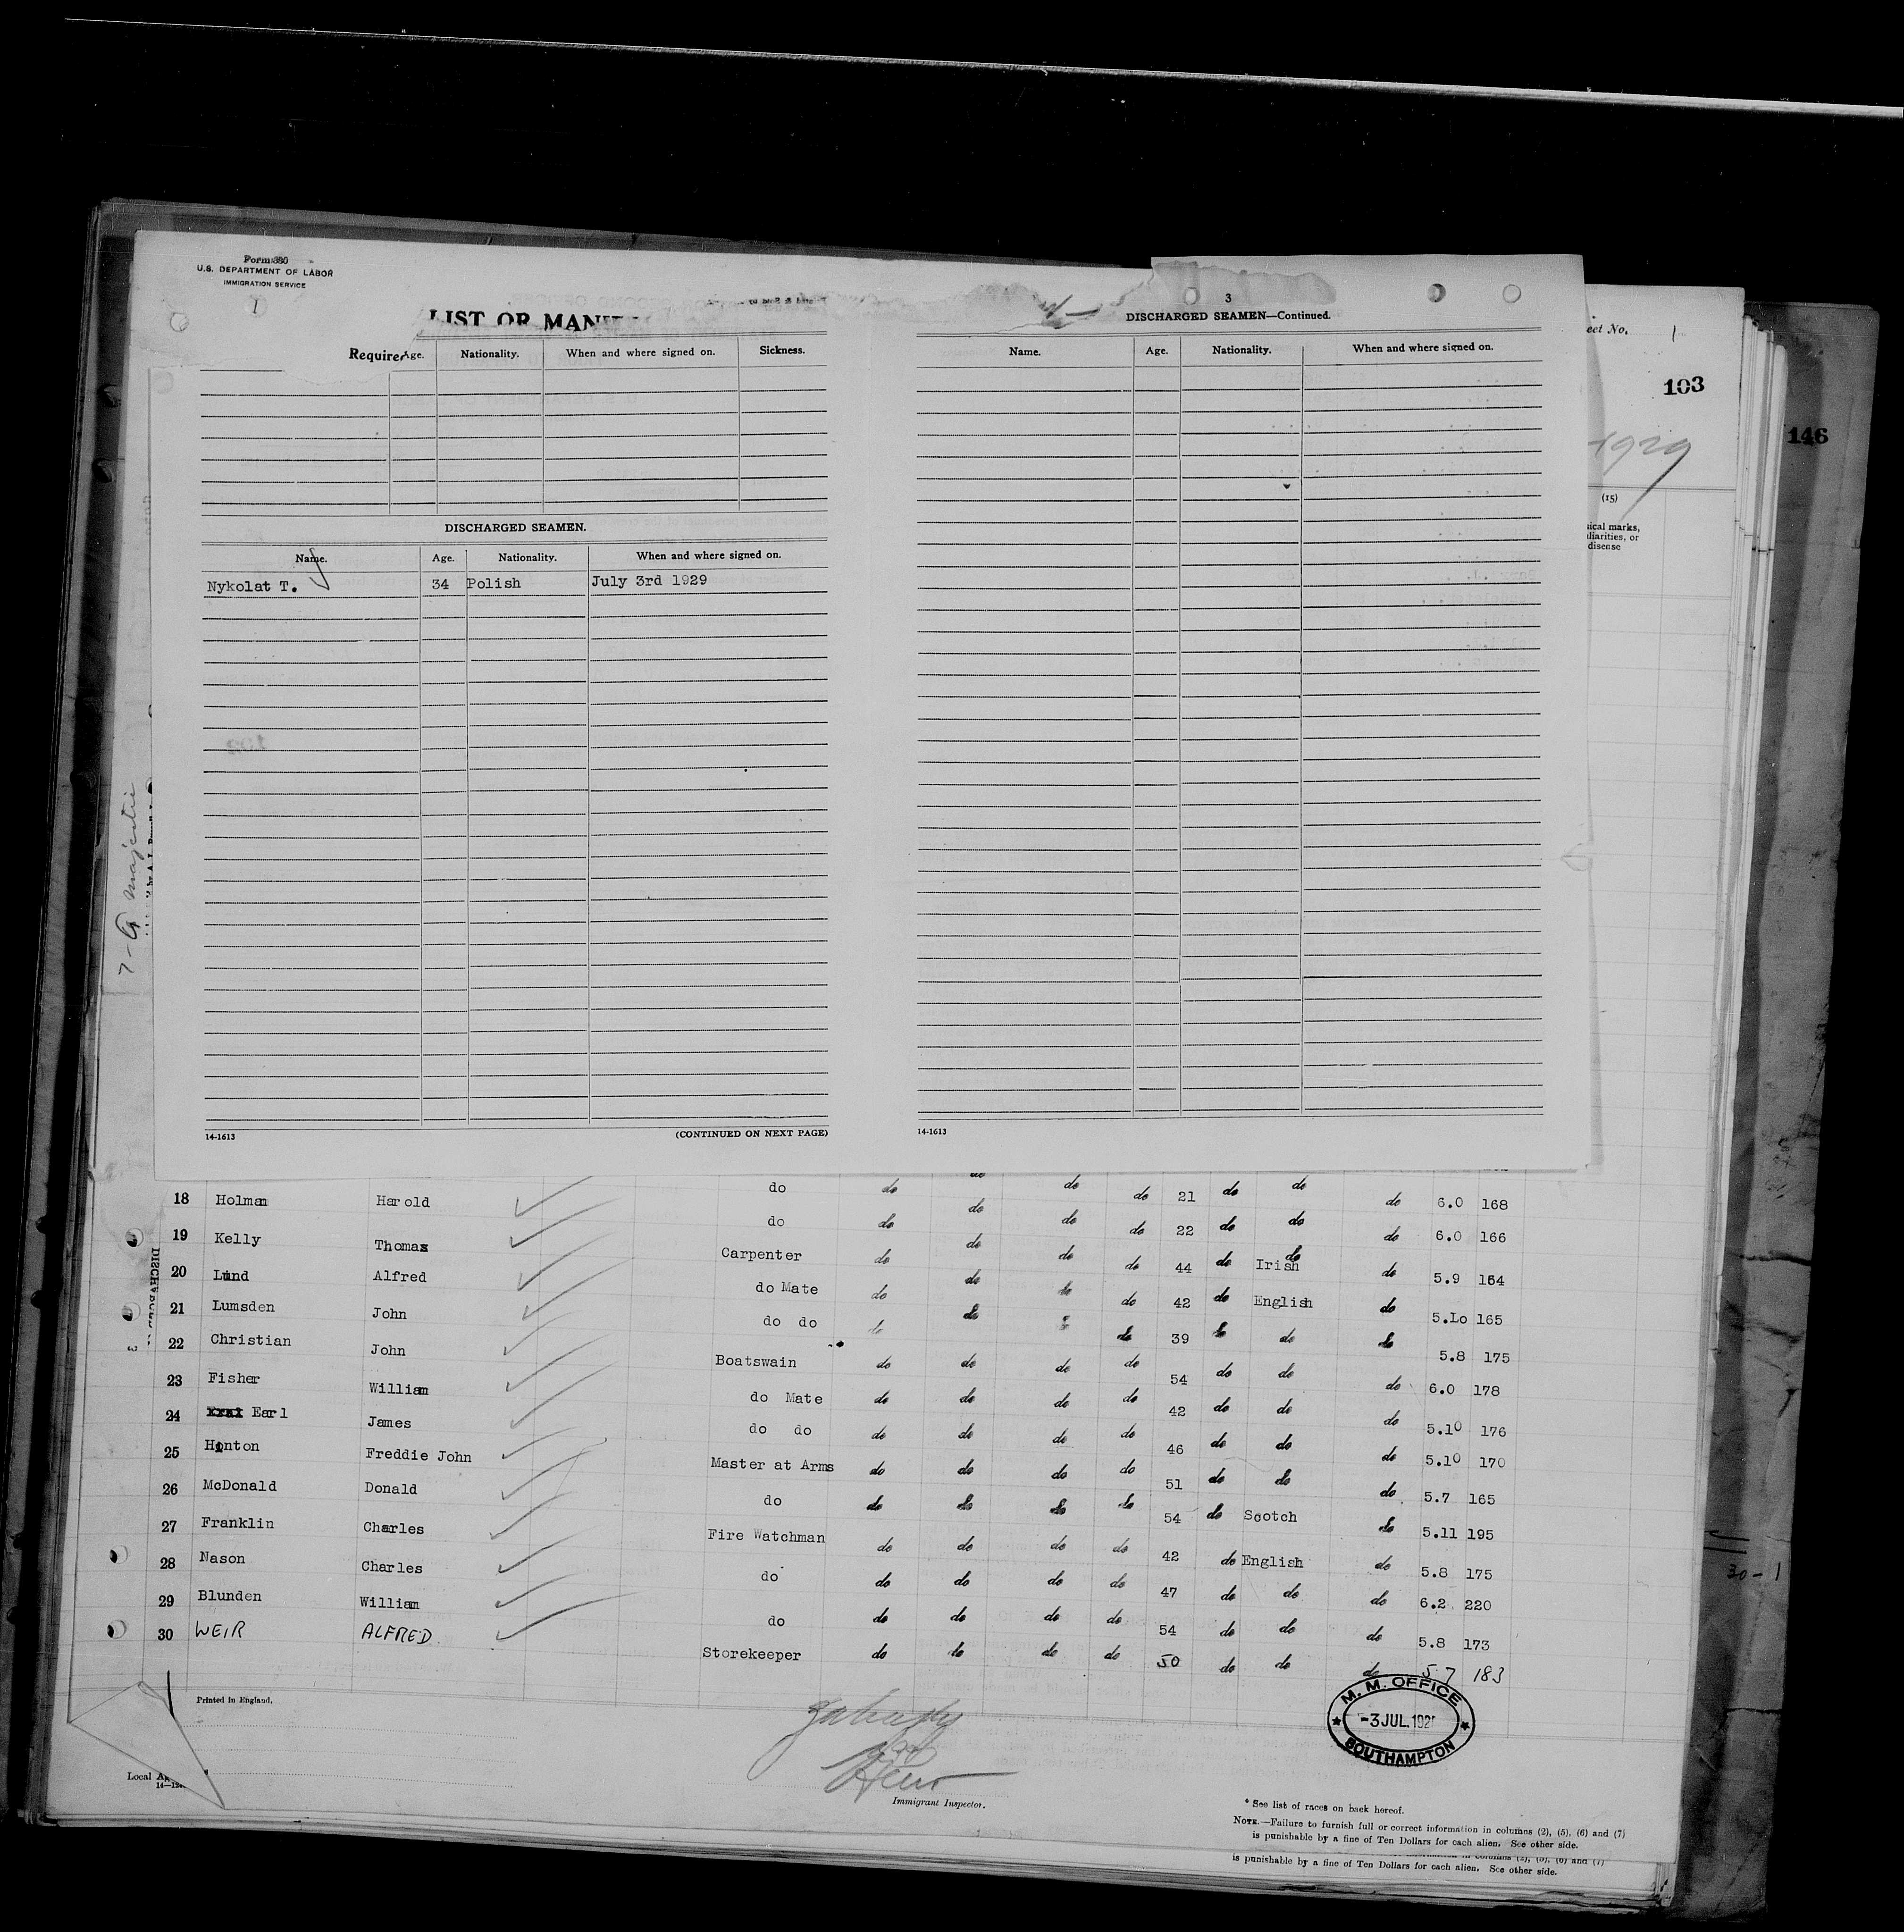 Form 380
U.S. DEPARTMENT OF LABOR
IMMIGRATION SERVICE
1
LIST OR
Require
Age. Nationality. When and where signed on. Sickness.
DISCHARGED SEAMEN.
Name. Age. Nationality. When and where signed on.
Nykolat T. 34 Polish July 3rd 1929
14-1613 (CONTINUED ON NEXT PAGE)
3
DISCHARGED SEAMEN—Continued.
Name. Age. Nationality. When and where signed on.
14-1613
eet No. 1
103
146
1929
(15)
ical marks,
liarities, or
disease
majestic
18 Holman Harold do do do do do 21 do do do 6.0 168
19 Kelly Thomas do do do do do 22 do do do 6.0 166
20 Lund Alfred Carpenter do do do do 44 do Irish do 5.9 164
21 Lumsden John do Mate do do do do 42 do English do 5.Lo 165
22 Christian John do do do do do 39 do do do 5.8 175
23 Fisher William Boatswain do do do do 54 do do do 6.0 178
24 Earl James do Mate do do do do 42 do do do 5.10 176
25 Hinton Freddie John do do do do do do 46 do do do 5.10 170
26 McDonald Donald Master at Arms do do do do 51 do do do 5.7 165
27 Franklin Charles do do do do do 54 do Scotch do 5.11 195
28 Nason Charles Fire Watchman do do do do 42 do English do 5.8 175
29 Blunden William do do do do do 47 do do do 6.2 220
30 WEIR ALFRED do do do do do 54 do do do 5.8 173
Storekeeper do do do do 50 do do do 5 7 183
Printed in England.
M. M. OFFICE
-3 JUL. 192
SOUTHAMPTON
Local
Immigrant Inspector.
30-1
* See list of races on back hereof.
NOTE.—Failure to furnish full or correct information in columns (2), (5), (6) and (7)
is punishable by a fine of Ten Dollars for each alien. See other side.
is punishable by a fine of Ten Dollars for each alien. See other side.